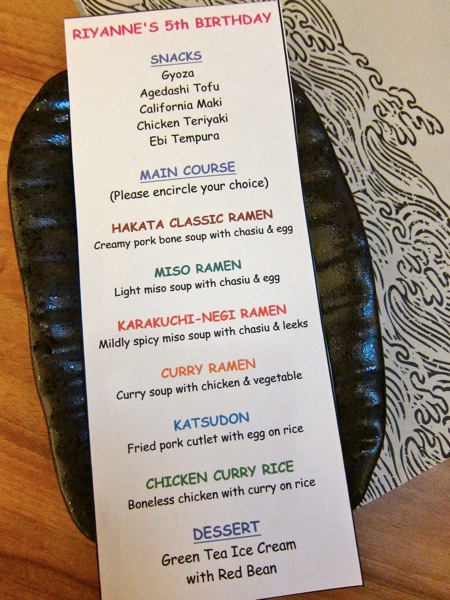 RIYANNE'S 5th BIRTHDAY
SNACKS
Gyoza
Agedashi Tofu
California Maki
Chicken Teriyaki
Ebi Tempura
MAIN COURSE
(Please encircle your choice)
HAKATA CLASSIC RAMEN
Creamy pork bone soup with chasiu & egg
MISO RAMEN
Light miso soup with chasiu & egg
KARAKUCHI-NEGI RAMEN
Mildly spicy miso soup with chasiu & leeks
CURRY RAMEN
Curry soup with chicken & vegetable
KATSUDON
Fried pork cutlet with egg on rice
CHICKEN CURRY RICE
Boneless chicken with curry on rice
DESSERT
Green Tea Ice Cream
with Red Bean